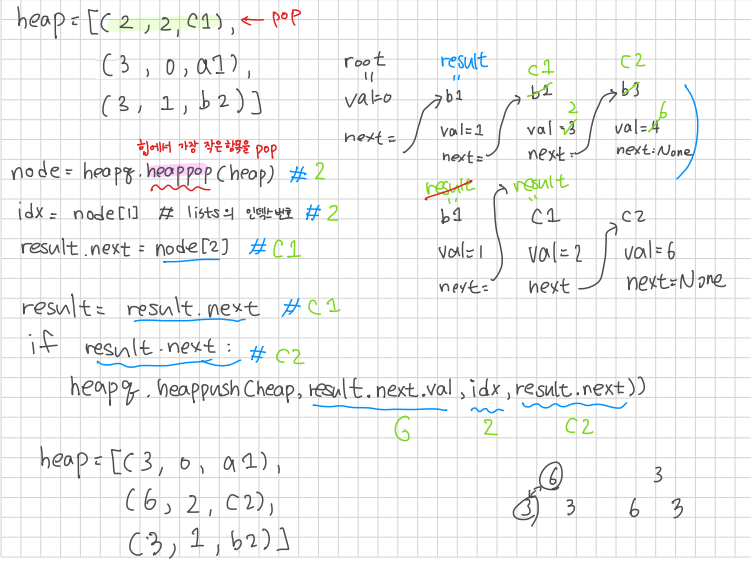 heap = [( 2 , 2, C1), ← pop
( 3 , 0, a1),
( 3 , 1, b2)]
root
"
val=0
next=
result
"
b1
val=1
next=
C1
b2
2
val=3
next=
C2
b3
6
val=4
next=None
힙에서 가장 작은 항목을 pop
node = heapq.heappop(heap) # 2
idx = node[1] # lists의 인덱스번호 # 2
result.next = node[2] # C1
result
"
b1
val=1
next=
result
"
C1
val=2
next
C2
val=6
next=None
result = result.next # C1
if result.next: # C2
heapq.heappush(heap, result.next.val, idx, result.next))
6 2 C2
heap = [( 3 , 0 , a1),
(6, 2, C2),
(3, 1, b2)]
6
3 3
3
6 3